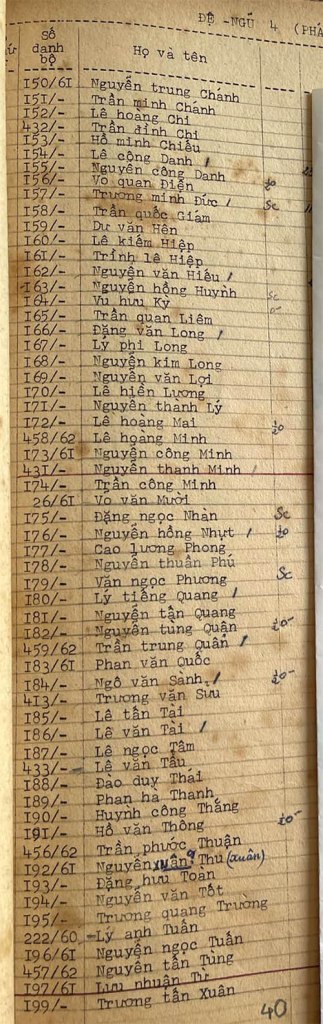 ĐỆ-NGŨ 4 (PHÁ
Số danh bộ Họ và tên
I50/6I Nguyễn trung Chánh
I5I/- Trần minh Chánh
I52/- Lê hoàng Chi
432/- Trần đình Chi
I53/- Hồ minh Chiếu
I54/- Lê công Danh /
I55/- Nguyễn công Danh
I56/- Võ quan Điện
I57/- Trương minh Đức / Sc
I58/- Trần quốc Giám
I59/- Dư văn Hên
I60/- Lê kiêm Hiệp
I6I/- Trịnh lê Hiệp
I62/- Nguyễn văn Hiếu /
I63/- Nguyễn hồng Huỳnh
I64/- Vu hưu Ky Sc
I65/- Trần quan Liêm
I66/- Đặng văn Long /
I67/- Lý phi Long
I68/- Nguyễn kim Long
I69/- Nguyễn văn Lợi
I70/- Lê hiền Lương
I7I/- Nguyễn thành Lý
I72/- Lê hoàng Mai
458/62 Lê hoàng Minh
I73/6I Nguyễn công Minh
43I/- Nguyễn thanh Minh /
I74/- Trần công Minh
26/6I Võ văn Mười
I75/- Đặng ngọc Nhàn Sc
I76/- Nguyễn hồng Nhựt /
I77/- Cao lương Phong
I78/- Nguyễn thuần Phú
I79/- Văn ngọc Phương Sc
I80/- Lý tiếng Quang /
I8I/- Nguyễn tấn Quang
I82/- Nguyễn tùng Quân
459/62 Trần trung Quân /
I83/6I Phan văn Quốc
I84/- Ngô văn Sanh /
4I3/- Trương văn Sửu
I85/- Lê tấn Tài
I86/- Lê văn Tài /
I87/- Lê ngọc Tâm
433/- Lê văn Tấu
I88/- Đào duy Thái
I89/- Phan hà Thanh
I90/- Huỳnh công Thắng
I9I/- Hồ văn Thông
456/62 Trần phước Thuận
I92/6I Nguyễn xuân Thu (xuân)
I93/- Đặng hưu Toàn
I94/- Nguyễn văn Tốt
I95/- Trương quang Trường
222/60 Lý anh Tuấn
I96/6I Nguyễn ngọc Tuấn
457/62 Nguyễn tấn Tùng
I97/6I Lưu nhuận Từ
I99/- Trương tấn Xuân
40